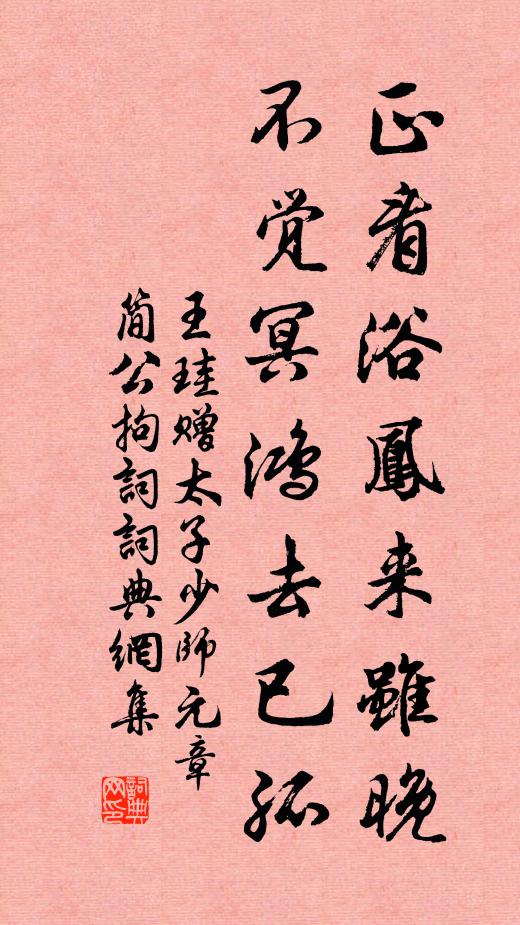 正看浴鳳来雖晚
不覚冥鴻去已孤
王珪赠太子少師元章
简公拘詞詞典網集
詞典网印